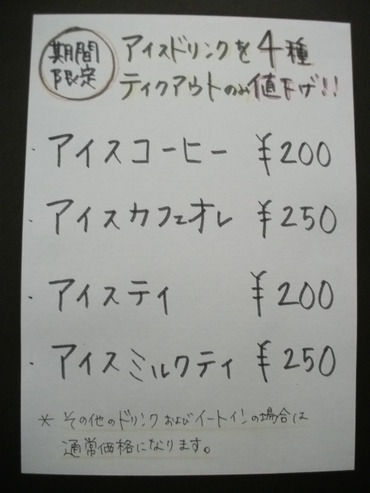 期間
限定
アイスドリンクを4種
ティクアウトのみ値下げ!!
・アイスコーヒー ¥200
・アイスカフェオレ ¥250
・アイスティ ¥200
・アイスミルクティ ¥250
* その他のドリンクおよびイートインの場合は
通常価格になります。